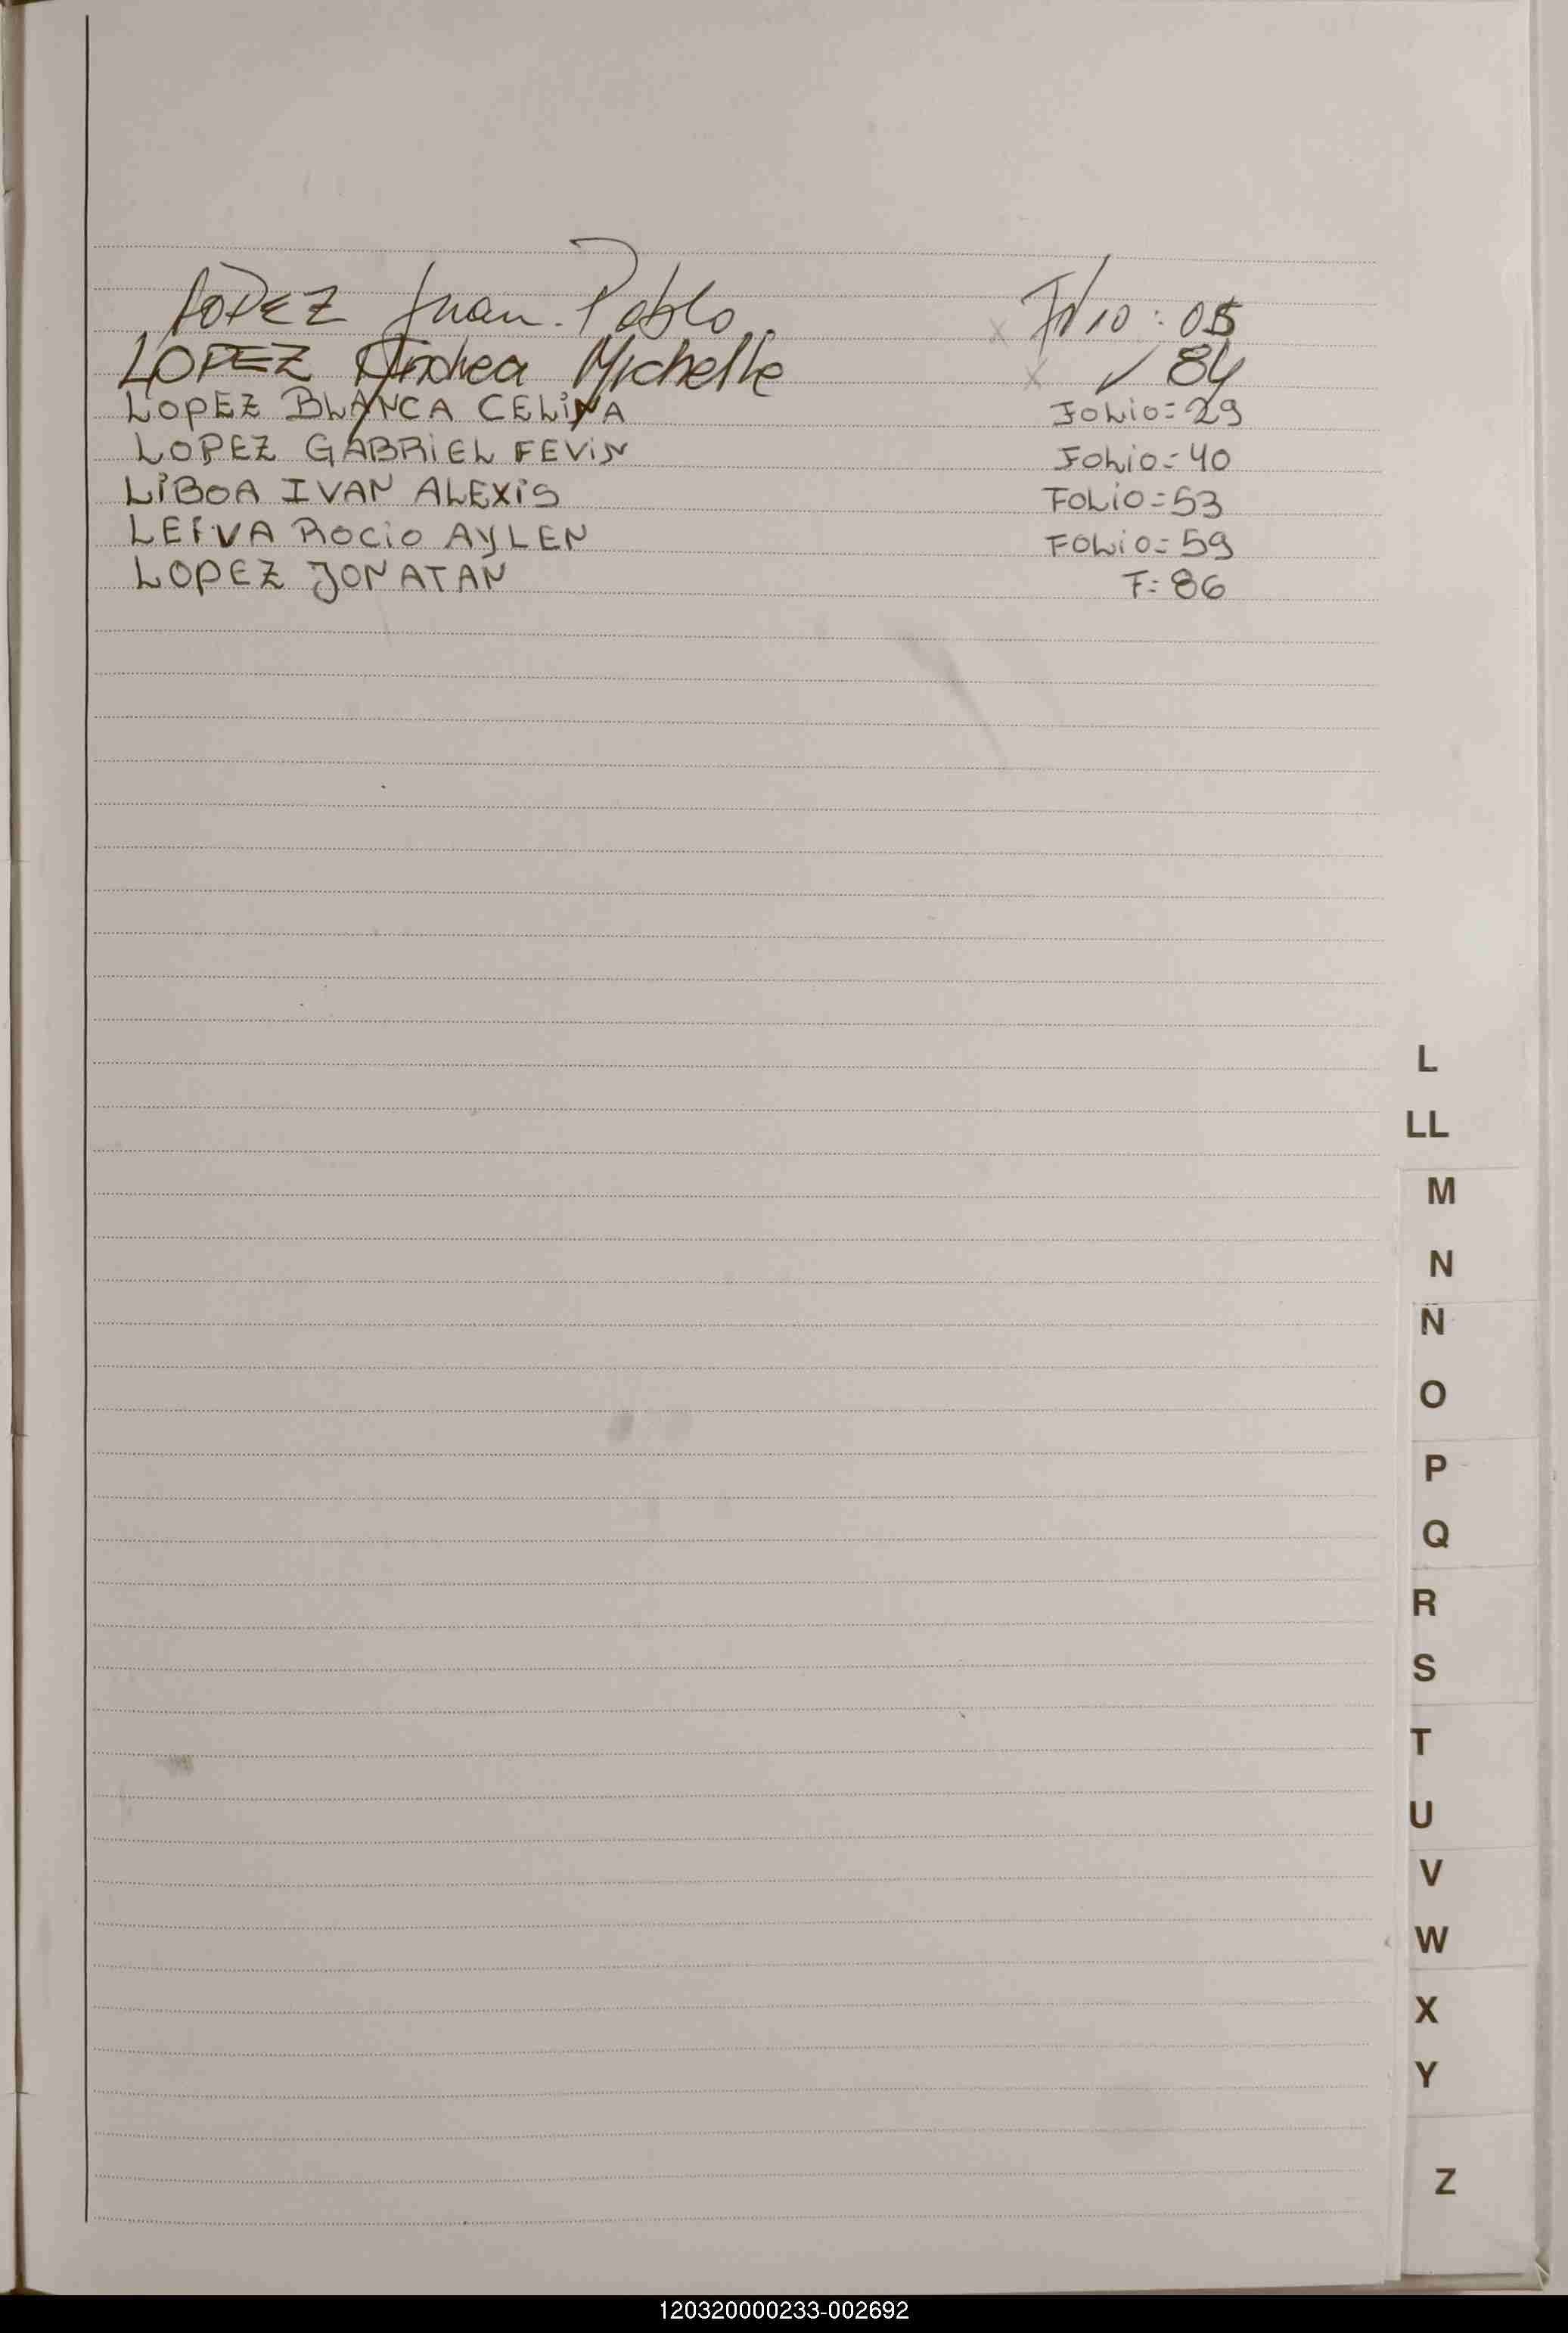 LOPEZ Juan Pablo x Folio: 05
LOPEZ Andrea Michelle x ✓ 84
LOPEZ BLANCA CELINA FOLIO=29
LOPEZ GABRIEL FEVIN FOLIO=40
LIBOA IVAN ALEXIS FOLIO=53
LEIVA ROCIO AYLEN FOLIO=59
LOPEZ JONATAN F=86
L
LL
M
N
Ñ
O
P
Q
R
S
T
U
V
W
X
Y
Z
120320000233-002692